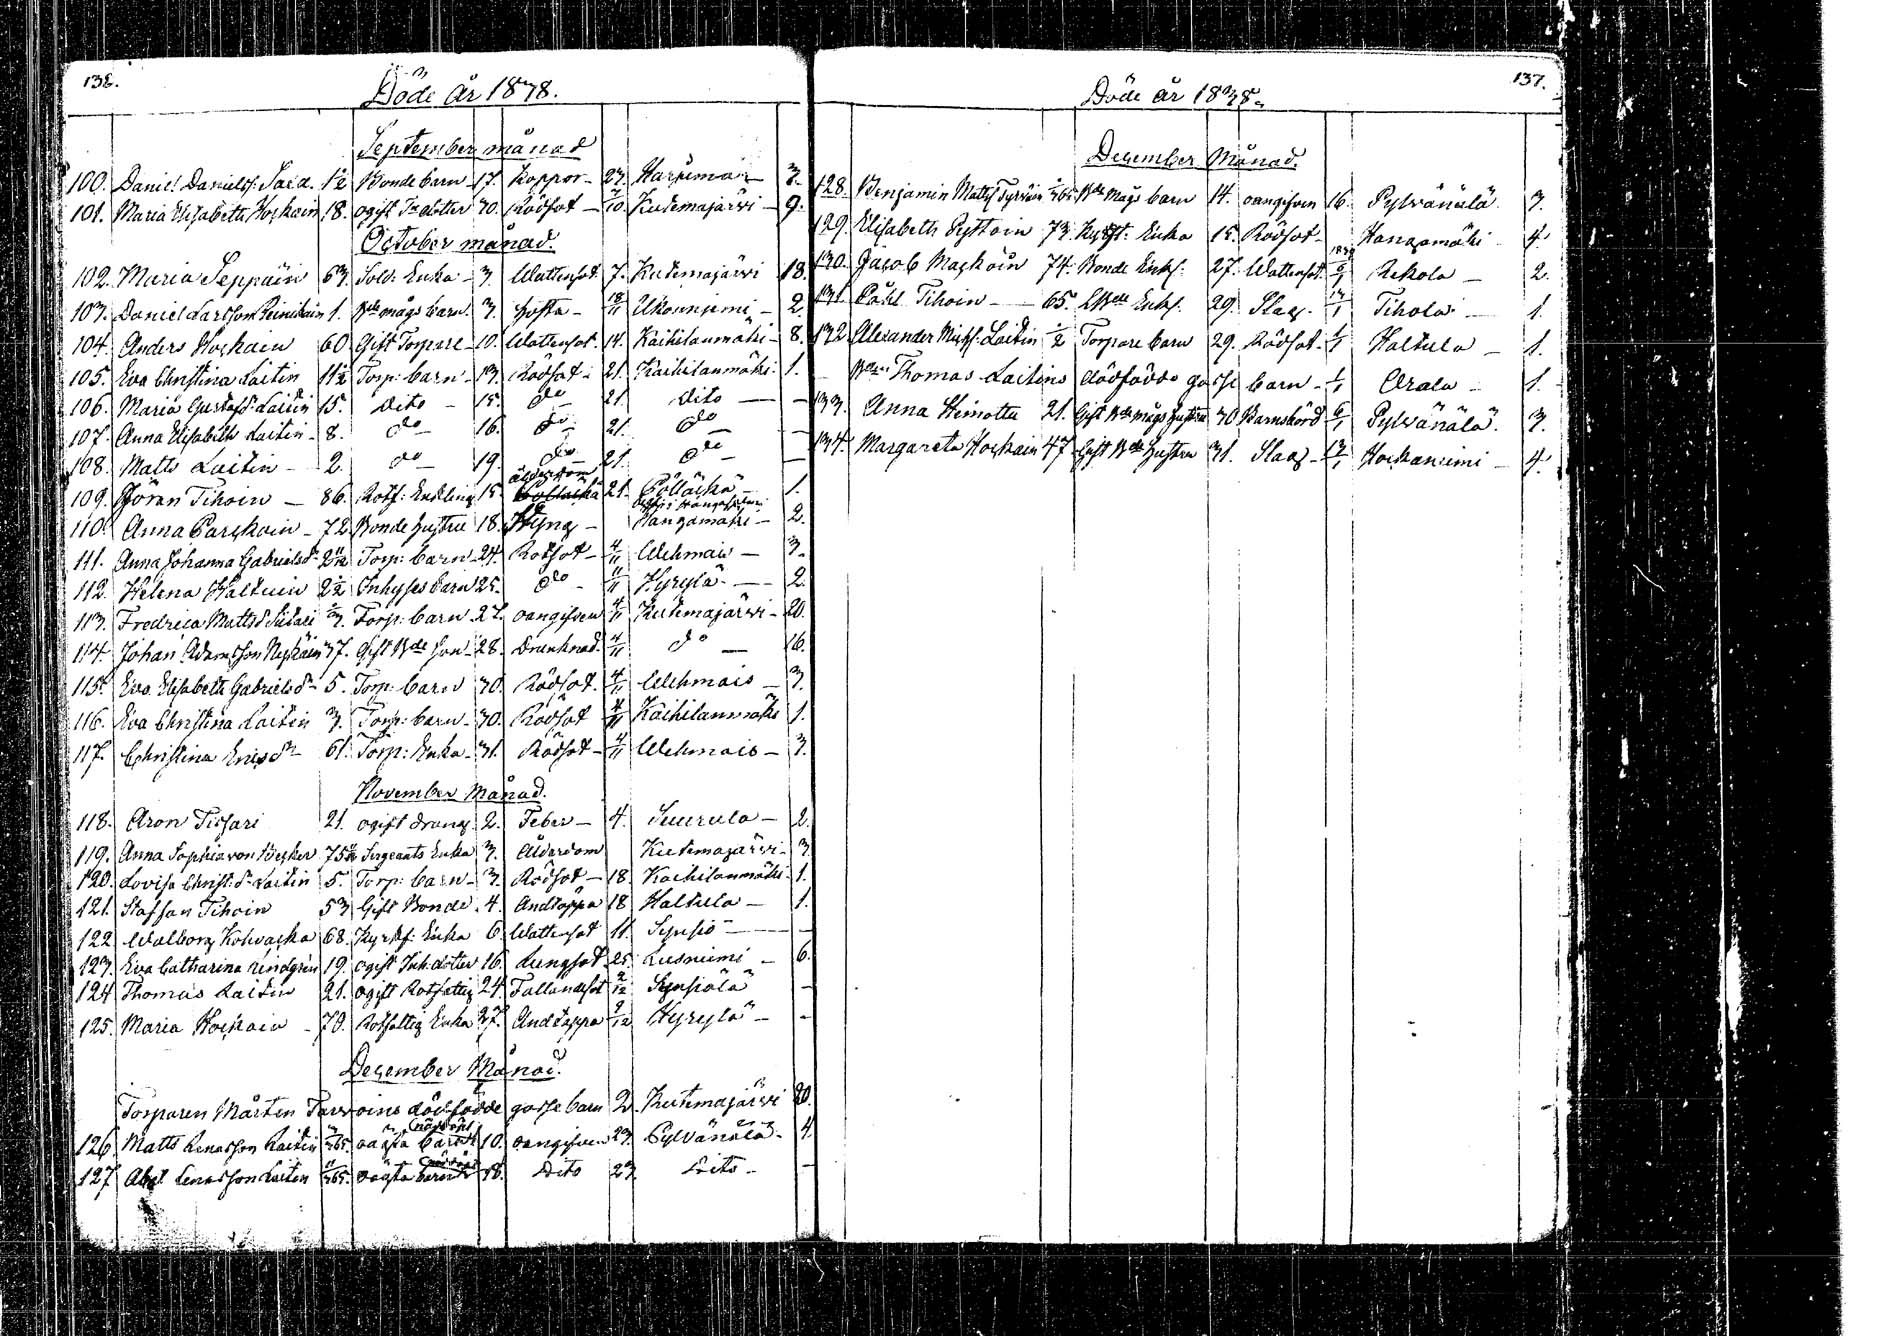 136.
Döde år 1838.
September månad
100. Daniel Danielss: 1 1/2 Bonde barn 17. Koppor 23. 3.
101. Maria Elisabeth Hoskain 18. ogift dotter 30. Rödsot 7/10 Kutemajärvi 9.
October månad.
102. Maria Seppäin 63. Sold: Enka 3. Wattusot 7. Kutemajärvi 18.
103. Daniel Larsson 1. Bde mågs barn. 3. hosta 18/11 Ukonniemi 2.
104. Anders Hoskain 60 Gift Torpare 10. Wattusot. 14. Kaihilanmäki 8.
105. Eva Christina Laitin 11 1/2 Torp: barn 13. Rödsot 21. Kaihilanmäki 1.
106. Maria Gustafsdr Laitin 15. dito 15. do 21 dito
107. Anna Elisabeth Laitin 8. do 16. do 21. do
108. Matts Laitin 2. do 19. do 21. do
109. Jöran Tihoin 86. Rotf: Enkling 15. ålderdom 21. Pölläskä 1.
110. Anna Parskain 72 Bonde hustru 18. Hangamäki 2.
111. Anna Johanna Gabrielsdr 2 11/12 Torp: barn 24. Rödsot 4/11 Wehmais 3.
112. Helena Haltuin 2 1/2 Inhyses barn 25. do 11/11 Hyrylä 2
113. Fredrica Mattsdr 2/3. Torp: barn 27. oangifven 4/11 Kutemajärvi 20.
114. Johan Adamsson 37. Gift Bde Son 28. Drunknad. 4/11 do 16.
115. Eva Elisabeth Gabrielsdr 5. Torp: barn 30. Rödsot. 4/11 Wehmais 3.
116. Eva Christina Laitin 3. Torp: barn 30. Rödsot 4/11 Kaihilanmäki 1.
117. Christina Ericsdr 61. Torp: Enka 31. Rödsot 4/11 Wehmais 3.
November Månad.
118. Aron Tissari 21. ogift dräng 2. Feber 4. Suurula 2.
119. Anna Sophia von Becker 75 Sergeants Enka 3. Ålderdom Kutemajärvi 3.
120. Lovisa Christ:dr Laitin 5. Torp: barn 3. Rödsot 18. Kaihilanmäki 1.
121. Staffan Tihoin 53 Gift Bonde 4. Andtäppa 18 Haltula 1.
122 Walborg Kohvacka 68. Kyrkf: Enka 6. Wattusot 11. Synsiö
123. Eva Catharina Lindgrén 19. ogift Inh: dotter 16. Lungsot 25. Lusniemi 6.
124 Thomas Laitin 21. ogift Rotfattig 24. Fallandesot 2/12 Synsiölä
125. Maria Hoskain 79. Rotfattig Enka 27. Andtäppa 9/12 Hyrylä
December Månad.
Torparen Mårten Tarvoins dödfödde gosse barn 2. Kutemajärvi 20.
126 Matts Lenasson Laitin /365. oägta barn 10. oangifven 23. Pylvänälä 4.
127 Abel Lenasson Laitin 11/365. oägta barn 18. Dito 23. Dito
137.
Döde år 1838.
December Månad.
128. Benjamin Mattss /365 Bde Mågs barn 14. oangifven 16. Pylvänälä 3.
129. Elisabeth Pyttoin 73. Kyrkf: Enka 15. Rödsot Hangamäki 4.
130. Jacob Maskoin 74. Bonde Enkl. 27. Wattusot. 1839 6/1 Rekola 2.
131. Påhl Tihoin 65. Bde Enkl. 29. Slag. 13/1 Tihola 1.
132. Alexander Michs: Laitin 1/2 Torpare barn 29. Rödsot 1/1 Haltula 1.
Bden Thomas Laitins dödfödde gosse barn 1/1 Arala 1.
133. Anna Himottu 21. Gift Bde mågs hustru 30 Barnsbörd 6/1 Pylvänälä. 3.
134. Margareta Hoskain 47 Gift Bde hustru 31. Slag 13/1 Hoskaniemi 4.